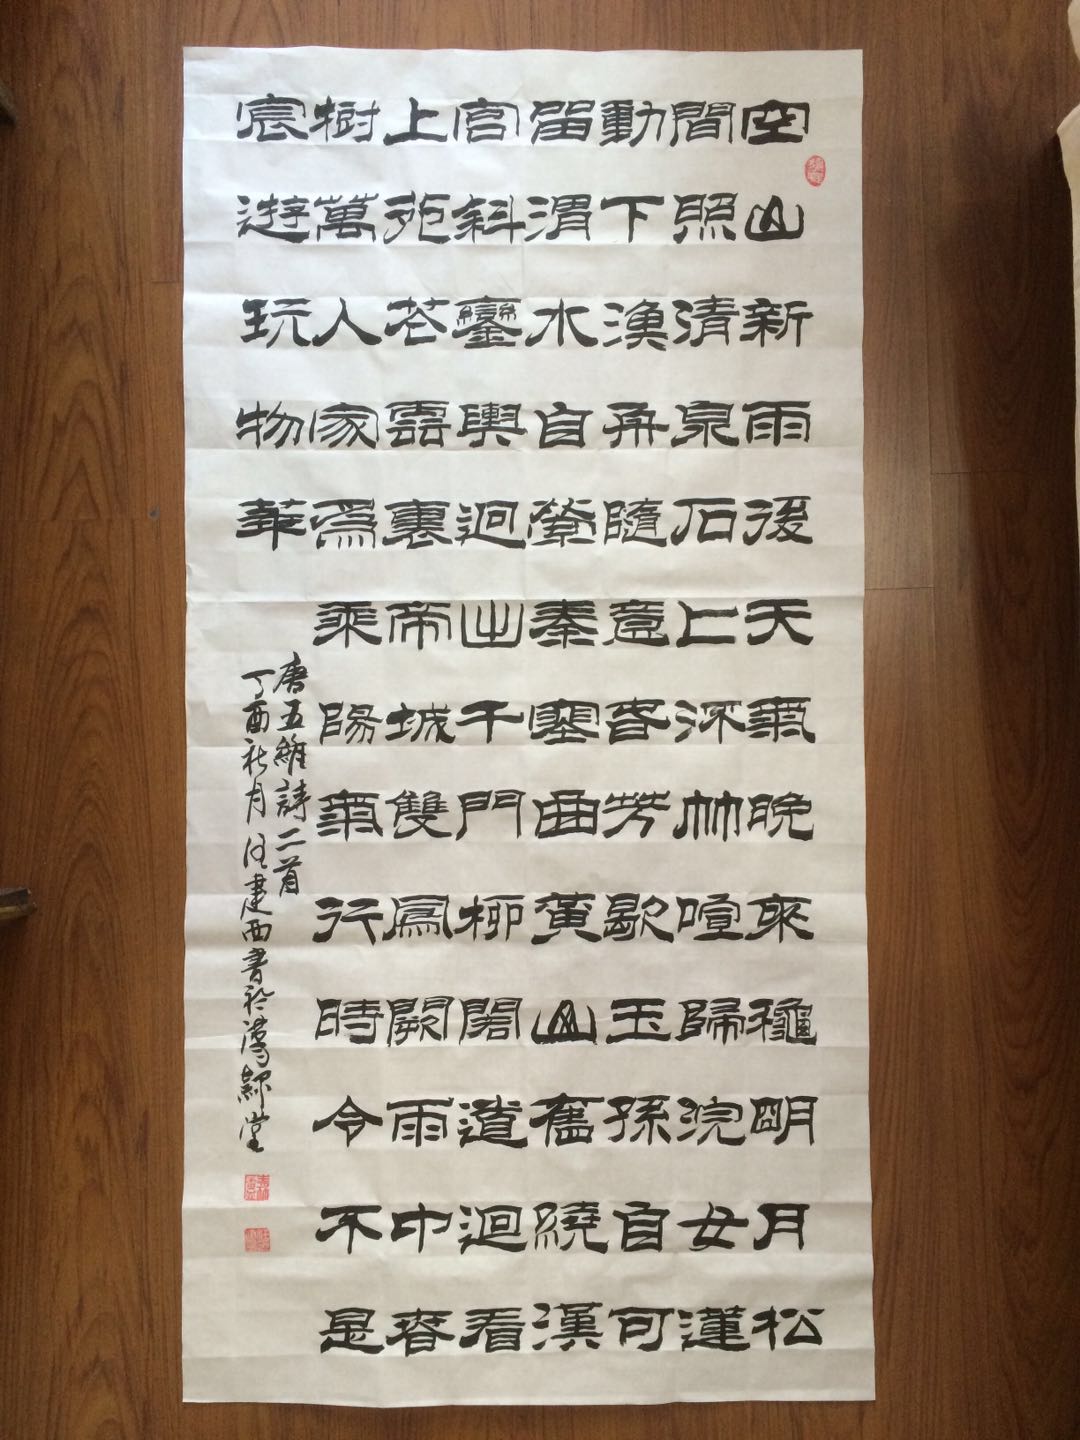 空山新雨後天氣晚來穐明月松
間照清泉石上流竹喧歸浣女蓮
動下漁舟隨意春芳歇王孫自可
留渭水自縈秦塞曲黃山舊繞漢
宮斜鑾輿迥出千門柳閣道迴看
上苑花雲裏帝城雙鳳闕雨中春
樹萬人家爲乘陽氣行時令不是
宸遊玩物華
唐王維詩二首
丁酉秋月建西書於堂